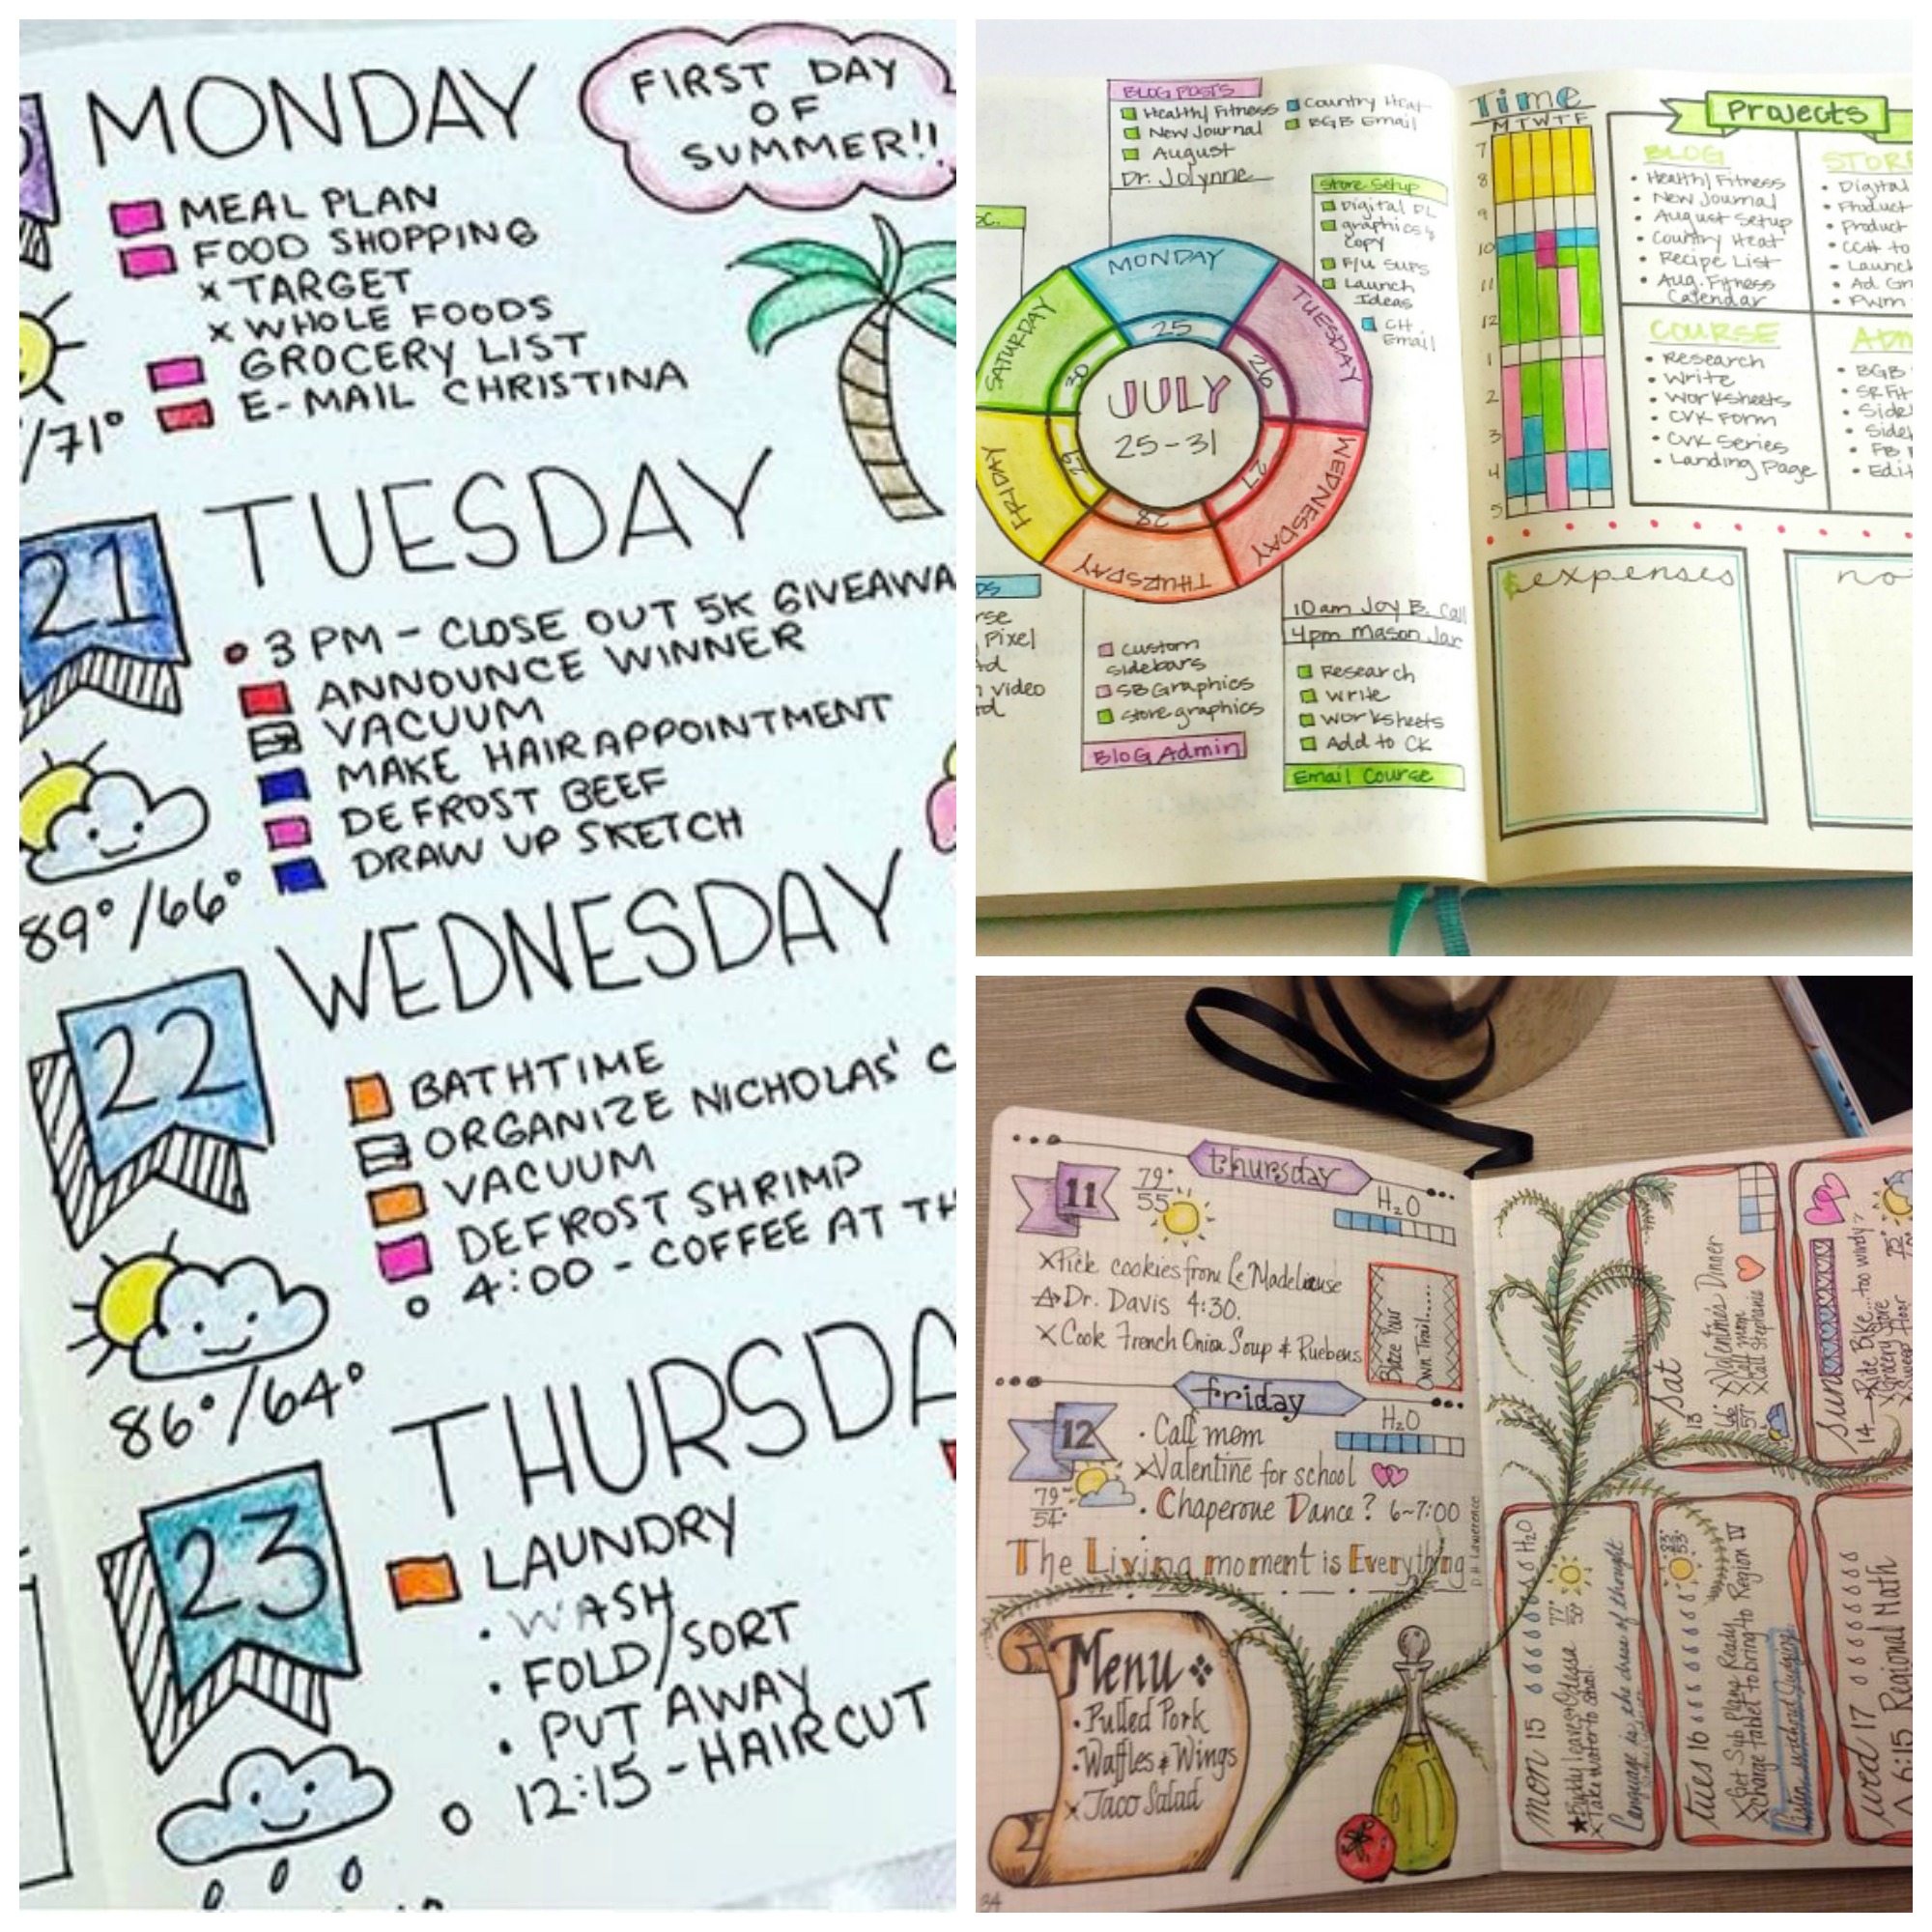 MONDAY
FIRST DAY
OF
SUMMER!!
MEAL PLAN
FOOD SHOPPING
x TARGET
x WHOLE FOODS
GROCERY LIST
E-MAIL CHRISTINA
/71°
21
TUESDAY
• 3 PM - CLOSE OUT 5K GIVEAWA
ANNOUNCE WINNER
VACUUM
MAKE HAIR APPOINTMENT
DEFROST BEEF
DRAW UP SKETCH
89°/66°
22
WEDNESDAY
BATHTIME
ORGANIZE NICHOLAS' C
VACUUM
DEFROST SHRIMP
4:00 - COFFEE AT TH
86°/64°
23
THURSDA
LAUNDRY
• WASH
• FOLD/SORT
• PUT AWAY
12:15 - HAIRCUT
BLOG POSTS
Health/Fitness
New Journal
August
Dr. Jolynne
Country Heat
BGB Email
Store Setup
Digital DL
graphics &
copy
F/u sups
Launch
Ideas
CH
Email
MONDAY
25
TUESDAY
26
WEDNESDAY
27
THURSDAY
28
FRIDAY
29
SATURDAY
30
JULY
25-31
rse
Pixel
video
Custom
sidebars
SB Graphics
store graphics
Blog Admin
10am Joy B. Call
4pm Mason Jar
Research
write
worksheets
Add to CK
Email Course
Time
M T W T F
7
8
9
10
11
12
1
2
3
4
5
Projects
BLOG
• Health/Fitness
• New Journal
• August Setup
• Country Heat
• Recipe List
• Aug. Fitness
Calendar
STORE
• Digital
• Product
• Product
• CCH to
• Launch
• Ad Gr
• PWM
COURSE
• Research
• Write
• Worksheets
• CVK Form
• CVK Series
• Landing Page
ADM
• BGB
• SR Fit
• Side
• Side
• FB
• Edit
$expenses
no
thursday
11
79°
55
H2O
X Pick cookies from Le Madelieuse
Dr. Davis 4:30.
X Cook French Onion Soup & Ruebens
Blaze Your
Own Trail....
friday
12
H2O
79°
54°
• Call mom
X Valentine for school
• Chaperone Dance? 6~7:00
The Living moment is Everything
D.H. Lawerence
Menu
• Pulled Pork
• Waffles & Wings
x Taco Salad
34
Sat
13
66°
57°
X Valentine's Dinner
X Call mom
X Call Stephanie
Sun
14
X Ride Bike... too windy?
X Grocery Store
X Sweep Floor
75°
mon 15
H2O
77°
50°
Buddy Leave Odessa
X Take water to school.
Language is the dress of thought
tues 16
83°
53°
X Get Sub Plans Ready
X Charge Tablet to bring to Region IV
wed 17
6:15 Regional Math